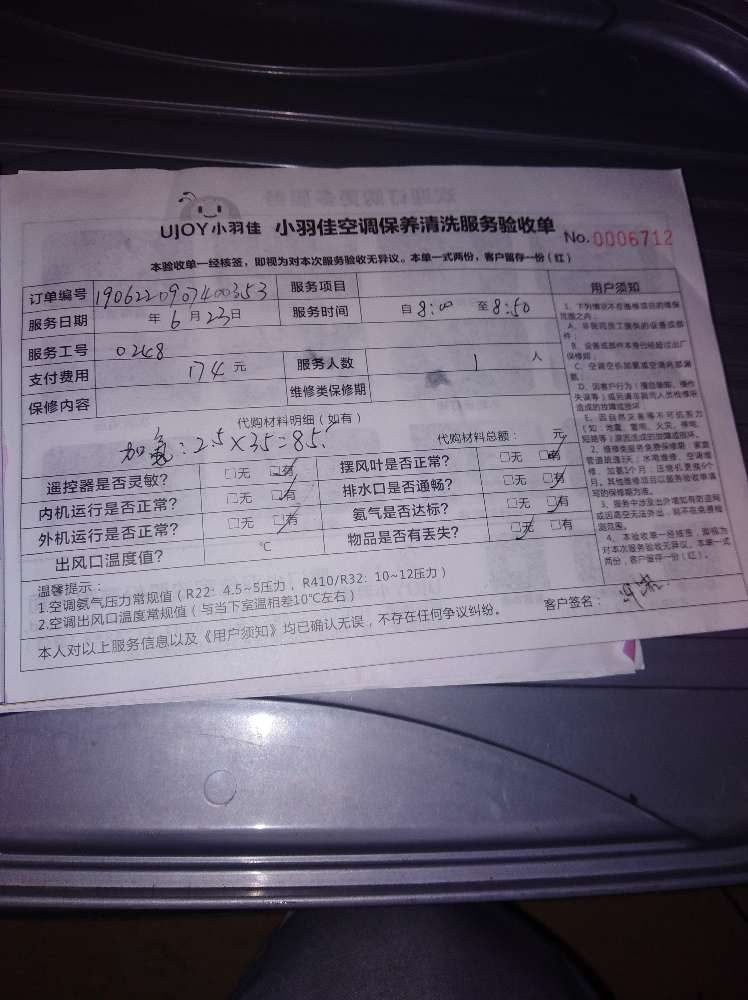 UJOY小羽佳 小羽佳空调保养清洗服务验收单 No.0006712
本验收单一经核签，即视为对本次服务验收无异议。本单一式两份，客户留存一份（红）
订单编号 1906220907400353 服务项目
服务日期 年 6 月 23 日 服务时间 自 8:00 至 8:50
服务工号 0248
支付费用 174 元 服务人数 1 人
保修内容 维修类保修期
代购材料明细（如有）
加氨：2.5×35=85. 代购材料总额： 元
遥控器是否灵敏？ □无 □有 摆风叶是否正常？ □无 □有
内机运行是否正常？ □无 □有 排水口是否通畅？ □无 □有
外机运行是否正常？ □无 □有 氨气是否达标？ □无 □有
出风口温度值？ ℃ 物品是否有丢失？ □无 □有
温馨提示：
1.空调氨气压力常规值（R22：4.5~5压力，R410/R32：10~12压力）
2.空调出风口温度常规值（与当下室温相差10℃左右）
客户签名：
本人对以上服务信息以及《用户须知》均已确认无误，不存在任何争议纠纷。
用户须知
1、下列情况不在维修项目的维保
范围之内：
A、非我司员工提供的设备或部
件；
B、设备或部件本身已经超过出厂
保修期；
C、空调空机加氨或空调内部漏
氨；
D、因客户行为（擅自装卸、操作
失误等）或元请非我司人员检修所
造成的故障或损坏
E、因自然灾害等不可抗拒力
（如：地震、雷电、火灾、掉电、
短路等）原因造成的故障或损坏。
2、维修类服务免费保修期：家庭
管道疏通3天；水电维修、空调维
修、加氨1个月；压缩机更换6个
月。其他维修项目以服务验收单填
写的保修期为准。
3、服务中涉及出外墙如有防盗网
或因高空无法外出，则不在免费检
测范围。
4、本验收单一经核签，即视为
对本次服务验收无异议。本单一式
两份，客户留存一份（红）。